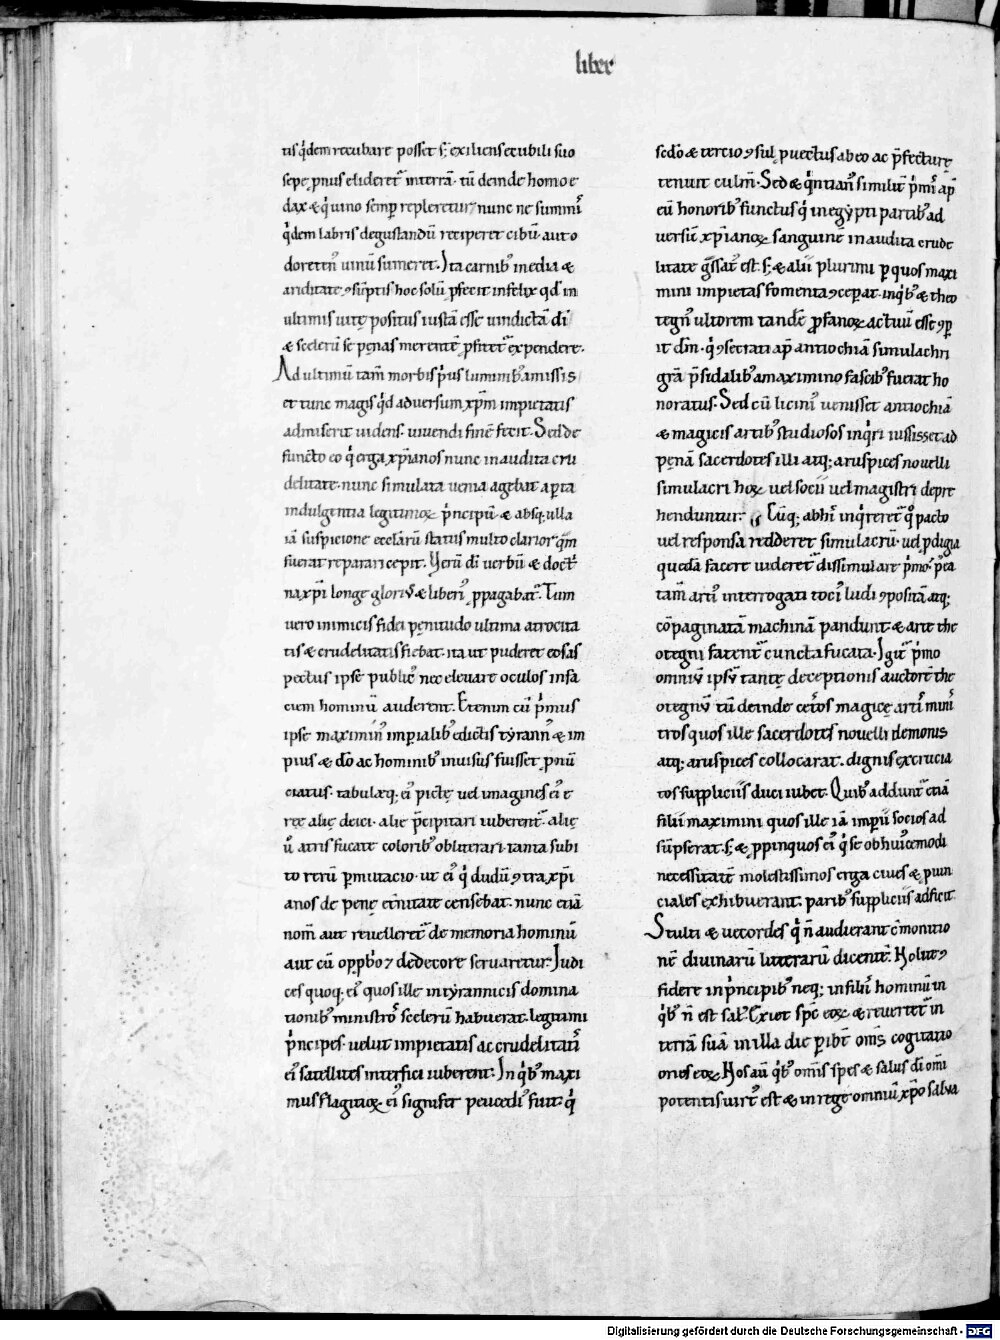 liber
tis q̇dem recubare posset s; exiliens ecubili suo
sepe p̄nus elideret᷑ in terrā · tū deinde homo e
dax & q̇ uino semꝑ repleretur nunc ne summi᷑
q̇dem labris degustandū reciperet cibū aut o
dorem uini sumeret. Ita carnib᷒ inedia &
ariditate ꝯsūptis hoc solū ꝓfecit infelix qd̄ in
ultimis uitę positus iustā esse uindictā di᷑
& scelerū se pęnas merentē ꝓfitet᷑ expendere.
Ad ultimū tam̄ morbis p̓us luminib᷒ amissis
et tunc magis q̇d aduersum xp̄m impietatis
admiserit uidens · uiuendi finē fecit. Sed de
functo eo q̇ erga xp̄ianos nunc inaudita cru
delitate · nunc simulata uenia agebat aꝑta
indulgentia legitimoꝝ p̓ncipū & absq; ulla
iā suspicione eccl̄arū status multo clarior q̄m
fuerat reparari cepit. Verū di᷑ uerbū & doct᷑
na xp̄i longe glorios᷒ & liberi᷒ ꝓpagabat᷑. Tum
uero inimicis fidei pęnitudo ultima atrocita
tis & crudelitatis fiebat · ita ut puderet eos as
pectus ipse public᷒ nec eleuare oculos in fa
ciem hominū auderent. Etenim cū p̓mus
ipse maximin᷒ imꝑialib᷒ edictis tyrann᷒ & im
pius & dō ac hominib᷒ inuisus fuisset ꝓnū
ciatus · tabulęq; ei᷒ pictę uel imagines ei᷒ e
reę alię deici · alię p̄cipitari iuberent᷑ · alię
ū atris fucate colorib᷒ obliterari · tanta subi
to rerū ꝑmutacio · ut ei᷒ q̇ dudū ꝯtra xp̄i
anos de penę et̄nitate censebat · nunc etiā
nom̄ aut reuelleret᷑ de memoria hominū
aut cū opꝓb᷒o & dedecore seruaretur. Iudi
ces quoq; ei᷒ quos ille in tyrannicis domina
tionib᷒ ministros scelerū habuerat · legitimi
p̓ncipes · uelut impietatis ac crudelitatis
ei᷒ satellites interfici iuberent᷑. In q̇b᷒ maxi
mus flagitioꝝ ei᷒ signifer peucedi᷒ fuit · q̇
sedo & tercio ꝯsul ꝓuectus ab eo ac p̄fecturę
tenuit culm̄. Sed & q̇ntian᷒ similit᷑ p̓mi᷒ ap̄
eū honorib᷒ functus q̇ in egypti partib᷒ ad
uersū xp̄ianoꝝ sanguinē inaudita crude
litate g̓ssat᷒ est. s; & alii plurimi ꝑ quos maxi
mini impietas fomenta ꝯceꝑat · in q̇b᷒ & theo
tegn᷒ ultorem tandē ꝓfanoꝝ actuū esse ꝯꝑ
it dm̄ · q̇ ꝯsecrati ap̄ antiochiā simulachri
grā p̄sidalib᷒ a maximino fascib᷒ fuerat ho
noratus. Sed cū licini᷒ uenisset antiochiā
& magicis artib᷒ studiosos inq̇ri iussisset ad
pęnā sacerdotes illi atq; aruspices nouelli
simulacri hoꝝ uel socii uel magistri depre
henduntur. Cūq; ab hi᷒ inq̇reret᷑ qo̓ pacto
uel responsa redderet simulacrū · uel ꝓdigia
quedā facere uideret᷑ dissimulare p̓mo · p᷒ea
tam̄ arti᷒ interrogati toci᷒ ludi ꝯpositā atq;
cōpaginatā machinā pandunt & arte the
otegni fatent᷑ cuncta fucata. Igit᷑ p̓mo
omniū ipsū tantę deceptionis auctorē the
otegnū tū deinde cet᷑os magicę arti᷒ mini᷒
tros quos ille sacerdotes nouelli demonis
atq; aruspices collocarat · dignis excrucia
tos suppliciis duci iubet. Quib᷒ addunt᷑ etiā
filii maximini quos ille iā imperii socios ad
sūpserat. s; & ꝓpinquos ei᷒ q̇ se ob huiuscemodi
necessitatē molestissimos erga ciues & ꝓuin
ciales exhibuerant · parib᷒ suppliciis adficit.
Stulti & uecordes q̇ n̄ audierant cōmonitio
nē diuinarū litterarū dicentē. Nolite ꝯ
fidere in p̓ncipib᷒ neq; in filii᷒ hominū in
q̇b᷒ n̄ est sal᷒. Exiet spc̄ eoꝝ & reuertet᷑ in
terrā suā in illa die ꝑibt̄ om̄s cogitatio
ones eoꝝ. Nos aū q̇b᷒ om̄is spes & salus di om̄i
potentis uirt᷒ est & in rege omniū xp̄o salua